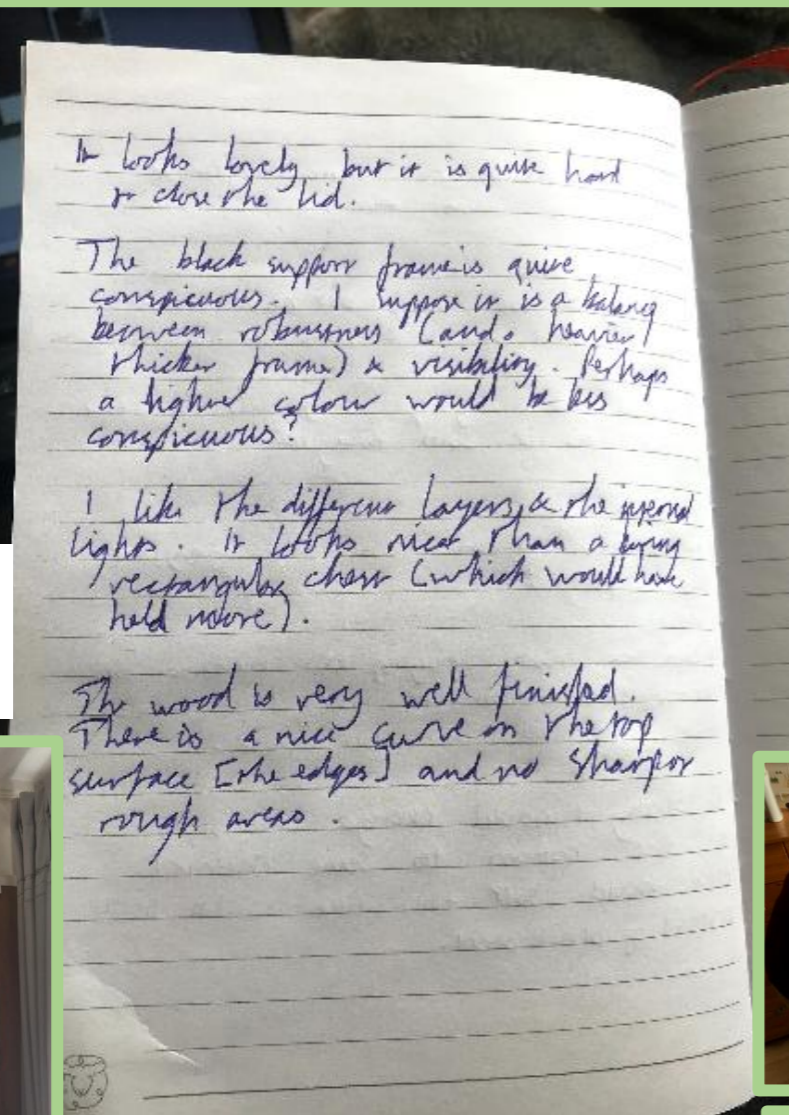 It looks lovely but it is quite hard
to close the lid.
The black support frame is quite
conspicuous. I suppose it is a balance
between robustness (and heavier/
thicker frame) & visibility. Perhaps
a lighter colour would be less
conspicuous?
I like the different layers & the internal
lights. It looks nicer than a boring
rectangular chest (which would have
held more).
The wood is very well finished.
There is a nice curve on the top
surface [the edges] and no sharp or
rough areas.